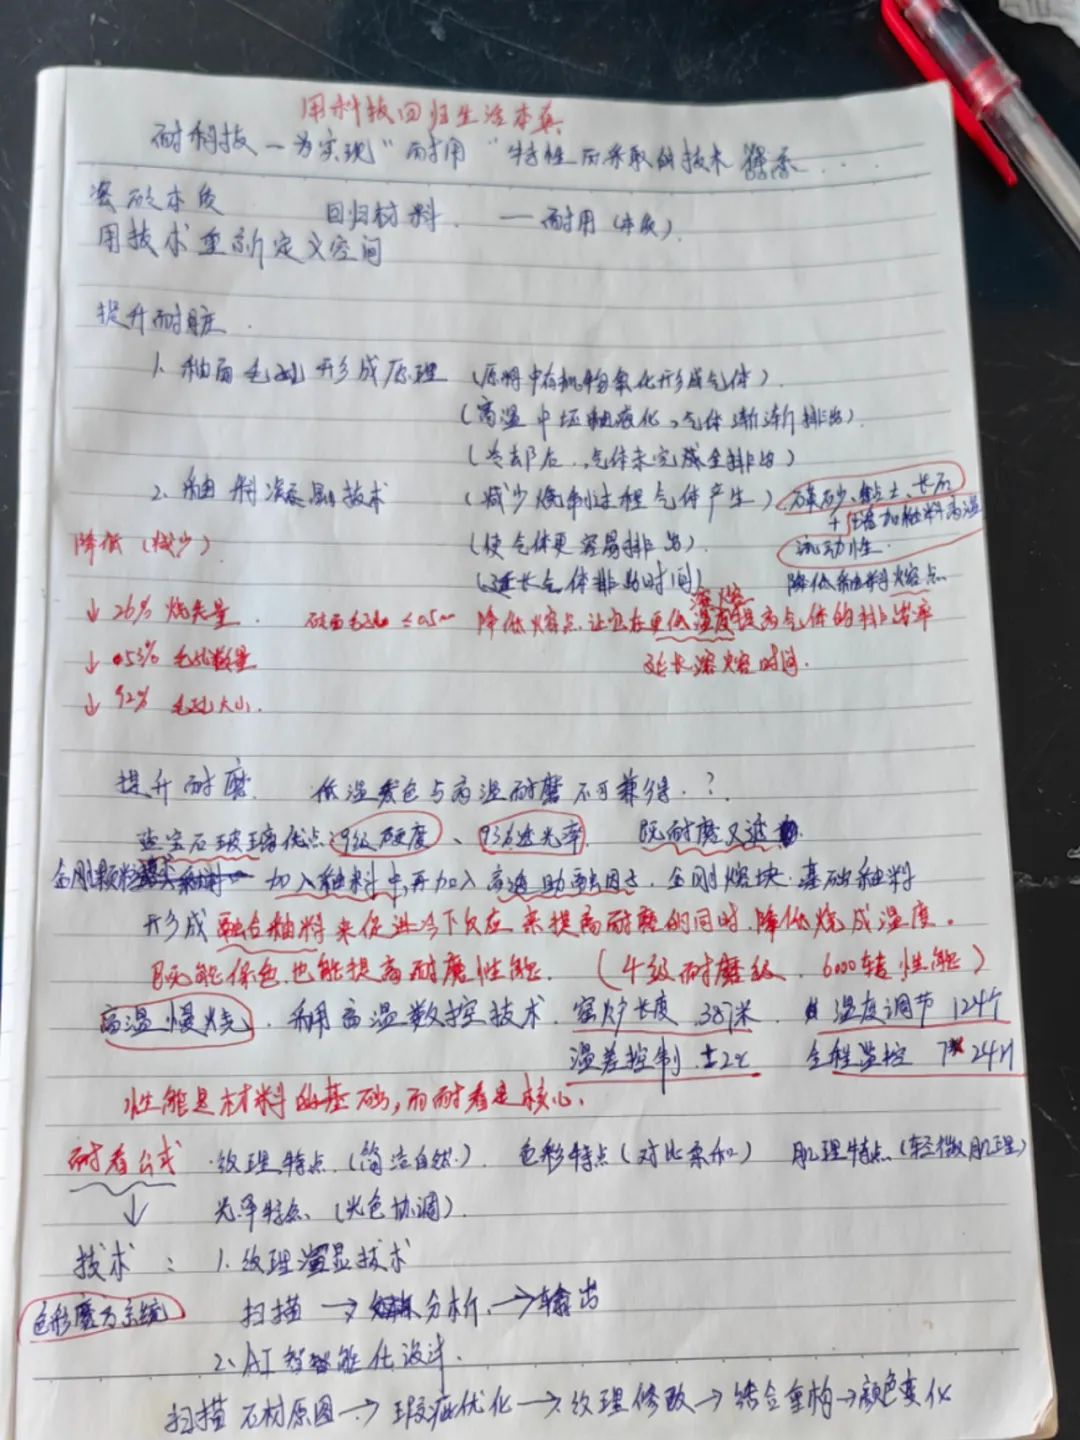 用科技回归生活本真
耐科技—为实现"耐用"特性而采取的技术探索...
瓷砖本质 回归材料. —耐用(本质).
用技术重新定义空间
提升耐脏.
1. 釉面毛孔形成原理 (原料中有机物氧化形成气体).
(高温中坯釉液化,气体渐渐排出).
(冷却后,气体未完成全排出)
2. 釉料 技术 (减少烧制过程气体产生) 石英砂、黏土、长石
+增加釉料高温
降低(减少) (使气体更容易排出). 流动性.
(延长气体排出时间) 降低釉料熔点
↓26% 烧失量. 砖面毛孔≤0.5mm 降低熔点,让它在更低温度提高气体的排出率
溶熔
↓53% 毛孔数量 延长溶熔时间.
↓92% 毛孔大小.
提升耐磨. 低温发色与高温耐磨不可兼得.?
蓝宝石玻璃优点:9级硬度、93%透光率. 既耐磨又透
金刚颗粒 加入釉料中,再加入高透助融因子.金刚熔块.基础釉料
形成融合釉料来促进冷下反应 来提高耐磨的同时.降低烧成温度.
既能保色.也能提高耐磨性能. (4级耐磨级.6000转性能)
高温慢烧. 利用高温数控技术.窑炉长度387米. 温度调节124个
温差控制±2℃ 全程监控7*24H
性能是材料的基础,而耐看是核心.
耐看公式 ·纹理特点(简洁自然). 色彩特点(对比柔和) 肌理特点(轻微肌理)
↓ 光泽特点(光色协调).
技术: 1.纹理 显技术
色彩魔方系统 扫描→分析.→输出
2、AI智能化设计.
扫描石材原图→瑕疵优化→纹理修改→结合重构→颜色变化